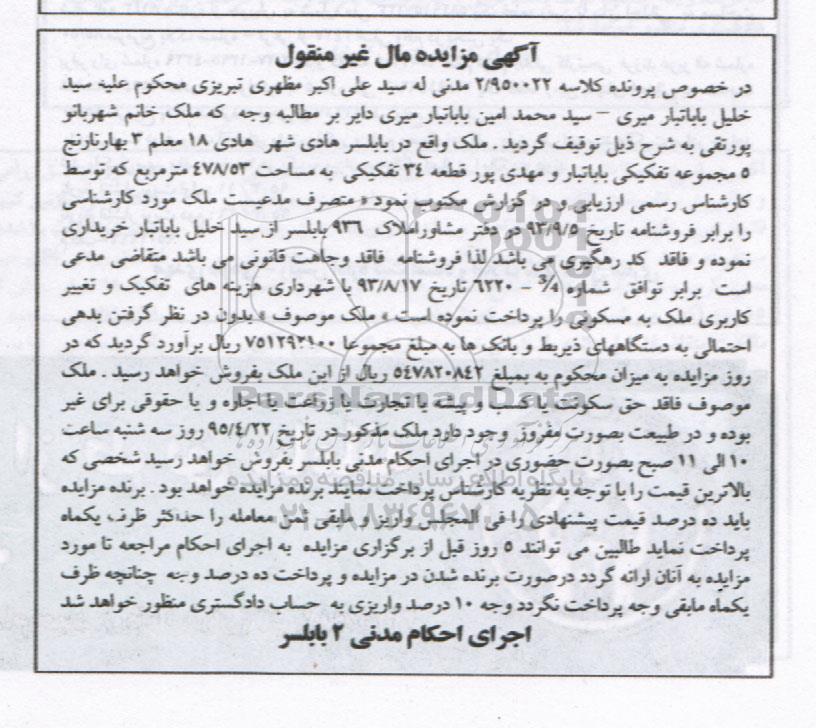 آگهی مزایده مال غیر منقول
در خصوص پرونده کلاسه ۲/۹۵۰۰۲۲ مدنی له سید علی اکبر مظهری تبریزی محکوم علیه سید
خلیل باباتبار میری – سید محمد امین باباتبار میری دایر بر مطالبه وجه که ملک خانم شهربانو
پورتقی به شرح ذیل توقیف گردید . ملک واقع در بابلسر هادی شهر هادی ۱۸ معلم ۳ بهارنارنج
۵ مجموعه تفکیکی باباتبار و مهدی پور قطعه ۳۴ تفکیکی به مساحت ۴۷۸/۵۳ مترمربع که توسط
کارشناس رسمی ارزیابی و در گزارش مکتوب نمود « متصرف مدعیست ملک مورد کارشناسی
را برابر فروشنامه تاریخ ۹۳/۹/۵ در دفتر مشاوراملاک ۹۳۶ بابلسر از سید خلیل باباتبار خریداری
نموده و فاقد کد رهگیری می باشد لذا فروشنامه فاقد وجاهت قانونی می باشد متقاضی مدعی
است برابر توافق شماره – ۶۲۲۰ تاریخ ۹۳/۸/۱۷ با شهرداری هزینه های تفکیک و تغییر
کاربری ملک به مسکونی را پرداخت نموده است » ملک موصوف » بدون در نظر گرفتن بدهی
احتمالی به دستگاههای ذیربط و بانک ها به مبلغ مجموعا ۷۵۱۲۹۲۱۰۰ ریال برآورد گردید که در
روز مزایده به میزان محکوم به بمبلغ ۵۴۷۸۲۰۸۴۲ ریال از این ملک بفروش خواهد رسید . ملک
موصوف فاقد حق سکونت یا کسب و پیشه یا تجارت یا زراعت یا اجاره و یا حقوقی برای غیر
بوده و در طبیعت بصورت مفروز وجود دارد ملک مذکور در تاریخ ۹۵/۴/۲۲ روز سه شنبه ساعت
۱۰ الی ۱۱ صبح بصورت حضوری در اجرای احکام مدنی بابلسر بفروش خواهد رسید شخصی که
بالاترین قیمت را با توجه به نظریه کارشناس پرداخت نمایند برنده مزایده خواهد بود . برنده مزایده
باید ده درصد قیمت پیشنهادی را فی المجلس واریز و مابقی ثمن معامله را حداکثر ظرف یکماه
پرداخت نماید طالبین می توانند ۵ روز قبل از برگزاری مزایده به اجرای احکام مراجعه تا مورد
مزایده به آنان ارائه گردد درصورت برنده شدن در مزایده و پرداخت ده درصد وجه چنانچه ظرف
یکماه مابقی وجه پرداخت نگردد وجه ۱۰ درصد واریزی به حساب دادگستری منظور خواهد شد
اجرای احکام مدنی ۲ بابلسر
ParsNamadData